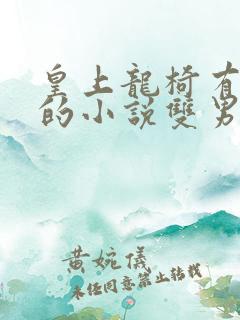 皇上龍椅有
的小説雙男
黄婉儀
未经同意禁止转载